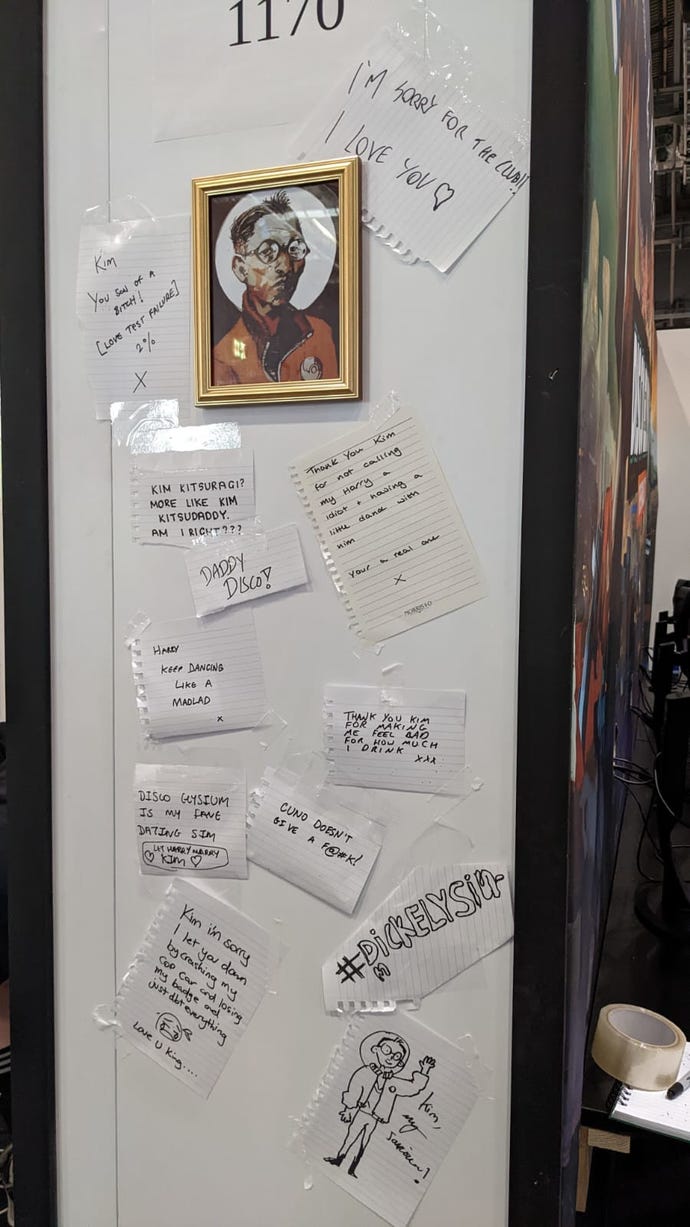 1170
I'M SORRY FOR THE CLUB!!
I LOVE YOU ♡
Kim
YOU SON OF A
BITCH!
[LOVE TEST FAILURE]
2%
X
KIM KITSURAGI?
MORE LIKE KIM
KITSUDADDY.
AM I RIGHT???
Thank You Kim
for not calling
my Harry a
idiot + having a
little dance with
him
Your a real one
x
DADDY
DISCO!
HARRY
KEEP DANCING
LIKE A
MADLAD
x
THANK YOU KIM
FOR MAKING
ME FEEL BAD
FOR HOW MUCH
I DRINK
xxx
DISCO ELYSIUM
IS MY FAVE
DATING SIM
LET HARRY MARRY
♡ KIM ♡
CUNO DOESN'T
GIVE A F@#K!
#DICKELYSIUM
Kim i'm sorry
I let you down
by crashing my
cop car and losing
my badge and
just dbt everything
Love u King....
Kim,
my
saviour!